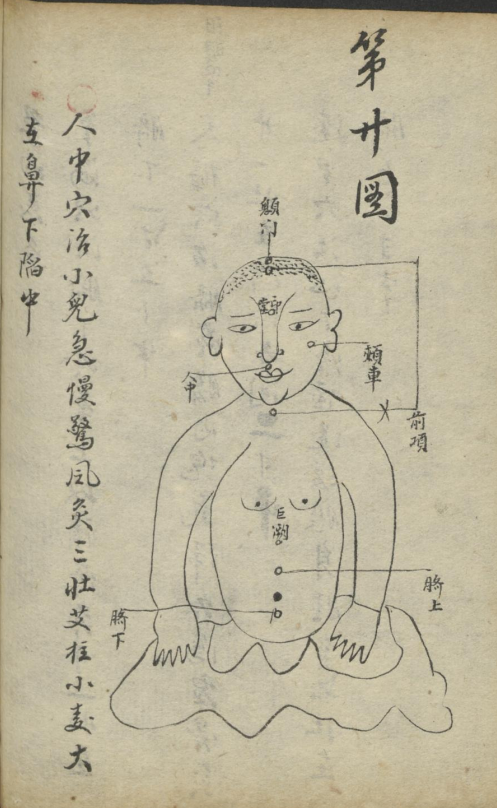 第廿圖
顖門
印堂
頰車
人中
前項
巨澗
臍上
臍下
人中穴治小兒急慢驚风灸三壯艾柱小麦大
在鼻下陷中